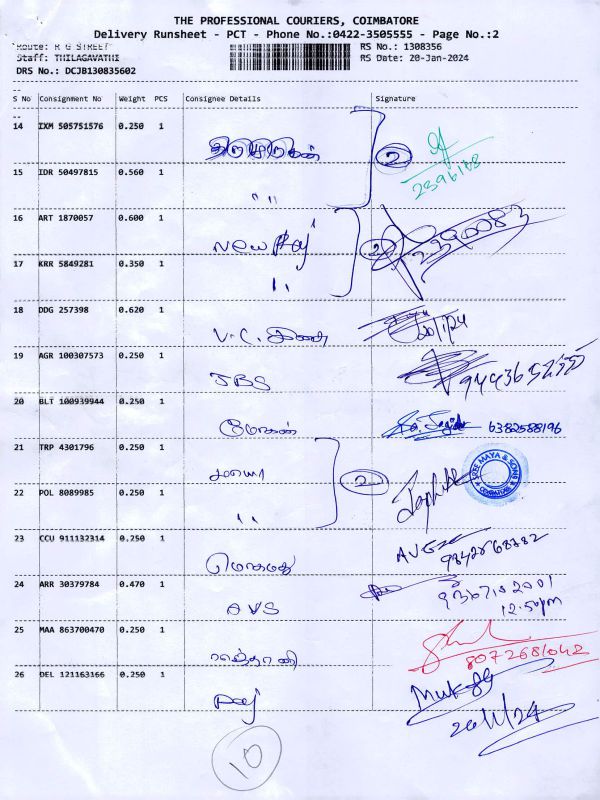 THE PROFESSIONAL COURIERS, COIMBATORE
Delivery Runsheet - PCT - Phone No.:0422-3505555 - Page No.:2
Route: R G STREET
RS No.: 1308356
Staff: THILAGAVATHI
RS Date: 20-Jan-2024
DRS No.: DCJB130835602
S No Consignment No Weight PCS Consignee Details Signature
14 IXM 505751576 0.250 1
2
2396168
15 IDR 50497815 0.560 1 " "
16 ART 1870057 0.600 1 New Raj
2 2390083
17 KRR 5849281 0.350 1 "
18 DDG 257398 0.620 1 V.C.
19 AGR 100307573 0.250 1 JBS
20 BLT 100939944 0.250 1 மோகன் 6382588196
21 TRP 4301796 0.250 1 மாயா
2
SREE MAYA & SONS
COIMBATORE
22 POL 8089985 0.250 1 "
23 CCU 911132314 0.250 1
24 ARR 30379784 0.470 1 AVS
12.50pm
25 MAA 863700470 0.250 1
8072681042
26 DEL 121163166 0.250 1 Raj
20/1/24
10